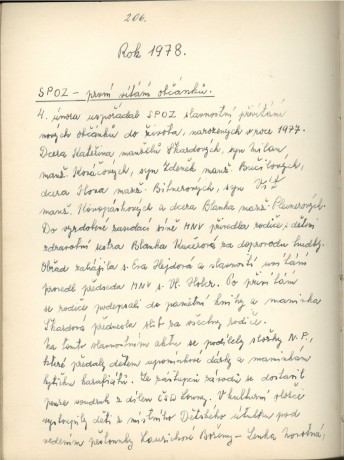 206.
Rok 1978.
SPOZ - první vítání občánků.
4. února uspořádal SPOZ slavnostní přivítání
nových občánků do života, narozených v roce 1977.
Dcera Kateřina manželů Škardových, syn Milan
manž. Kováčových, syn Zdeněk manž. Bročilových,
dcera Ilona manž. Bitnerových, syn Vít
manž. Konopáskových a dcera Blanka manž.
Do vyzdobené zasedací síně MNV přivedla rodiče s dětmi
zdravotní sestra Blanka Kučerová za doprovodu hudby.
Obřad zahájila s. Eva Hejdová a slavnostní uvítání
provedl předseda MNV s. Vl. Holer. Po přivítání
se rodiče podepsali do pamětní knihy a maminka
Škardová přednesla slib za všechny rodiče.
Na tomto slavnostním aktu se podílely složky N.F.,
které předaly dětem upomínkové dárky a maminkám
kytičku karafiátů. Ze zástupců závodů se dostavil
pouze soudruh z dílen ČSD Louny. V kulturní vložce
vystoupily děti z místního Dětského útulku pod
vedením pěstounky Boženy - Lenka